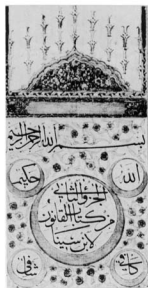 بسم الله الرحمن الرحيم
الله
حكيم
الجزء الثاني
من كتاب القانون
لابن سينا
كافي
شافي